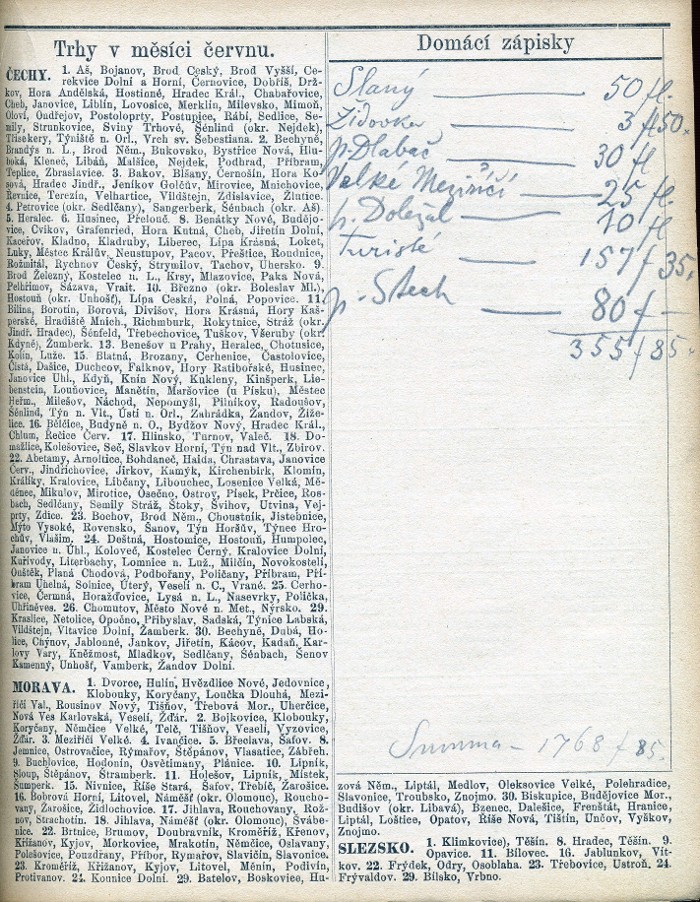 Trhy v měsíci červnu.
ČECHY. 1. Aš, Bojanov, Brod Český, Brod Vyšší, Ce-
rekvice Dolní a Horní, Černovice, Dobříš, Drž-
kov, Hora Andělská, Hostinné, Hradec Král., Chabařovice,
Cheb, Janovice, Liblín, Lovosice, Merklín, Milevsko, Mimoň,
Oloví, Ondřejov, Postoloprty, Postupice, Rábí, Sedlice, Se-
mily, Strunkovice, Sviny Trhové, Šénlind (okr. Nejdek),
Třísekery, Týniště n. Orl., Vrch sv. Šebestiana. 2. Bechyně,
Brandýs n. L., Brod Něm., Bukovsko, Bystřice Nová, Hlu-
boká, Kleneč, Libáň, Malšice, Nejdek, Podhrad, Příbram,
Teplice, Zbraslavice. 3. Bakov, Blšany, Černošín, Hora Ko-
sová, Hradec Jindř., Jeníkov Golčův, Mirovice, Mnichovice,
Řevnice, Terezín, Velhartice, Vildštejn, Zdislavice, Žlutice.
4. Petrovice (okr. Sedlčany), Sangerberk, Šénbach (okr. Aš).
5. Heralec. 6. Husinec, Přelouč. 8. Benátky Nové, Budějo-
vice, Cvikov, Grafenried, Hora Kutná, Cheb, Jiřetín Dolní,
Kaceřov, Kladno, Kladruby, Liberec, Lípa Krásná, Loket,
Luky, Městec Králův, Neustupov, Pacov, Přeštice, Roudnice,
Rožmitál, Rychnov Český, Strymilov, Tachov, Uhersko. 9.
Brod Železný, Kostelec n. L., Krsy, Mlazovice, Paka Nová,
Pelhřimov, Sázava, Vrait. 10. Březno (okr. Boleslav Ml.),
Hostouň (okr. Unhošť), Lípa Česká, Polná, Popovice. 11.
Bílina, Borotín, Borová, Divišov, Hora Krásná, Hory Kaš-
perské, Hradiště Mnich., Richmburk, Rokytnice, Stráž (okr.
Jindř. Hradec), Šénfeld, Třebechovice, Tuškov, Všeruby (okr.
Kdyně), Žumberk. 13. Benešov u Prahy, Heralec, Chotusice,
Kolín, Luže. 15. Blatná, Brozany, Cerhenice, Častolovice,
Čistá, Dašice, Duchcov, Falknov, Hory Ratibořské, Husinec,
Janovice Uhl., Kdyň, Knín Nový, Kukleny, Kinšperk, Lie-
benstein, Louňovice, Manětín, Maršovice (u Písku), Městec
Heřm., Milešov, Náchod, Nepomyšl, Pilníkov, Radoušov,
Šénlind, Týn n. Vlt., Ústí n. Orl., Zahrádka, Žandov, Žiže-
lice. 16. Bělčice, Budyně n. O., Bydžov Nový, Hradec Král.,
Chlum, Řečice Červ. 17. Hlinsko, Turnov, Valeč. 18. Do-
mažlice, Kolešovice, Seč, Slavkov Horní, Týn nad Vlt., Zbirov.
22. Abetamy, Arnoltice, Bohdaneč, Haida, Chrastava, Janovice
Červ., Jindřichovice, Jirkov, Kamýk, Kirchenbirk, Klomín,
Králíky, Kralovice, Libčany, Libouchec, Losenice Velká, Mě-
děnec, Mikulov, Mirotice, Osečno, Ostrov, Písek, Prčice, Ros-
bach, Sedlčany, Semily Stráž, Štoky, Švihov, Utvina, Vej-
prty, Zdice. 23. Bochov, Brod Něm., Choustník, Jistebnice,
Mýto Vysoké, Rovensko, Šanov, Týn Horšův, Týnec Hro-
chův, Vlašim. 24. Deštná, Hostomice, Hostouň, Humpolec,
Janovice u. Úhl., Koloveč, Kostelec Černý. Kralovice Dolní,
Kuřivody, Literbachy, Lomnice n. Luž., Milčín, Novokostelí,
Ouštěk, Planá Chodová, Podbořany, Poličany, Příbram, Pří-
bram Uhelná, Solnice, Úterý, Veselí n. C., Vrané. 25. Cerho-
vice, Čermná, Horažďovice, Lysá n. L., Nasevrky, Polička,
Uhříněves. 26. Chomutov, Město Nové n. Met., Nýrsko. 29.
Kraslice, Netolice, Opočno, Přibyslav, Sadská, Týnice Labská,
Vildštejn, Vltavice Dolní, Žamberk. 30. Bechyně, Dubá, Ho-
lice, Chýnov, Jablonné, Jankov, Jiřetín, Kácov, Kadaň, Kar-
lovy Vary, Kněžmost, Mladkov, Sedlčany, Šénbach, Šenov
Kamenný, Unhošť, Vamberk, Žandov Dolní.
MORAVA. 1. Dvorce, Hulín, Hvězdlice Nové, Jedovnice,
Klobouky, Koryčany, Loučka Dlouhá, Mezi-
říčí Val., Rousínov Nový, Tišňov, Třebová Mor., Uherčice,
Nová Ves Karlovská, Veselí, Žďár. 2. Bojkovice, Klobouky,
Koryčany, Němčice Velké, Telč, Tišňov, Veselí, Vyzovice,
Žďár. 3. Meziříčí Velké. 4. Ivančice. 5. Břeclava, Šafov. 8.
Jemnice, Ostrovačice, Rýmařov, Štěpánov, Vlasatice, Zábřeh.
9. Buchlovice, Hodonín, Osvětimany, Plánice. 10. Lipník,
Sloup, Štěpánov, Štramberk. 11. Holešov, Lipník, Místek,
Šumperk. 15. Nivnice, Říše Stará, Šafov, Třebíč, Žarošice.
16. Bobrová Horní, Litovel, Náměšť (okr. Olomouc), Roucho-
vany, Žarošice, Židlochovice. 17. Jihlava, Rouchovany, Rož-
nov, Strachotín. 18. Jihlava, Náměšť (okr. Olomouc), Švábe-
nice. 22. Brtnice, Brumov, Doubravník, Kroměříž, Křenov,
Křižanov, Kyjov, Morkovice, Mrakotín, Němčice, Oslavany,
Polešovice, Pouzdřany, Příbor, Rymařov, Slavičín, Slavonice.
23. Kroměříž, Křižanov, Kyjov, Litovel, Měnín, Podivín,
Protivanov. 24. Kounice Dolní. 29. Batelov, Boskovice, Hu-
Domácí zápisky
Slaný 50 fl.
Židovka 3 fl 50.
p. Dlabač 30 fl
Velké Meziříčí 25 fl
p. Doležal 10 fl
Turisté 157 f 35.
p. Stech 80 f —
355 f 85.
Summa - 1768 f 85.
zová Něm., Liptál, Medlov, Oleksovice Velké, Polehradice,
Slavonice, Troubsko, Znojmo. 30. Biskupice, Budějovice Mor.,
Budišov (okr. Libavá), Bzenec, Dalešice, Frenštát, Hranice,
Liptál, Loštice, Opatov, Říše Nová, Tištín, Unčov, Vyškov,
Znojmo.
SLEZSKO. 1. Klimkovice), Těšín. 8. Hradec, Těšín. 9.
Opavice. 11. Bílovec. 16. Jablunkov, Vít-
kov. 22. Frýdek, Odry, Osoblaha. 23. Třebovice, Ustroň. 24.
Frývaldov. 29. Bílsko, Vrbno.